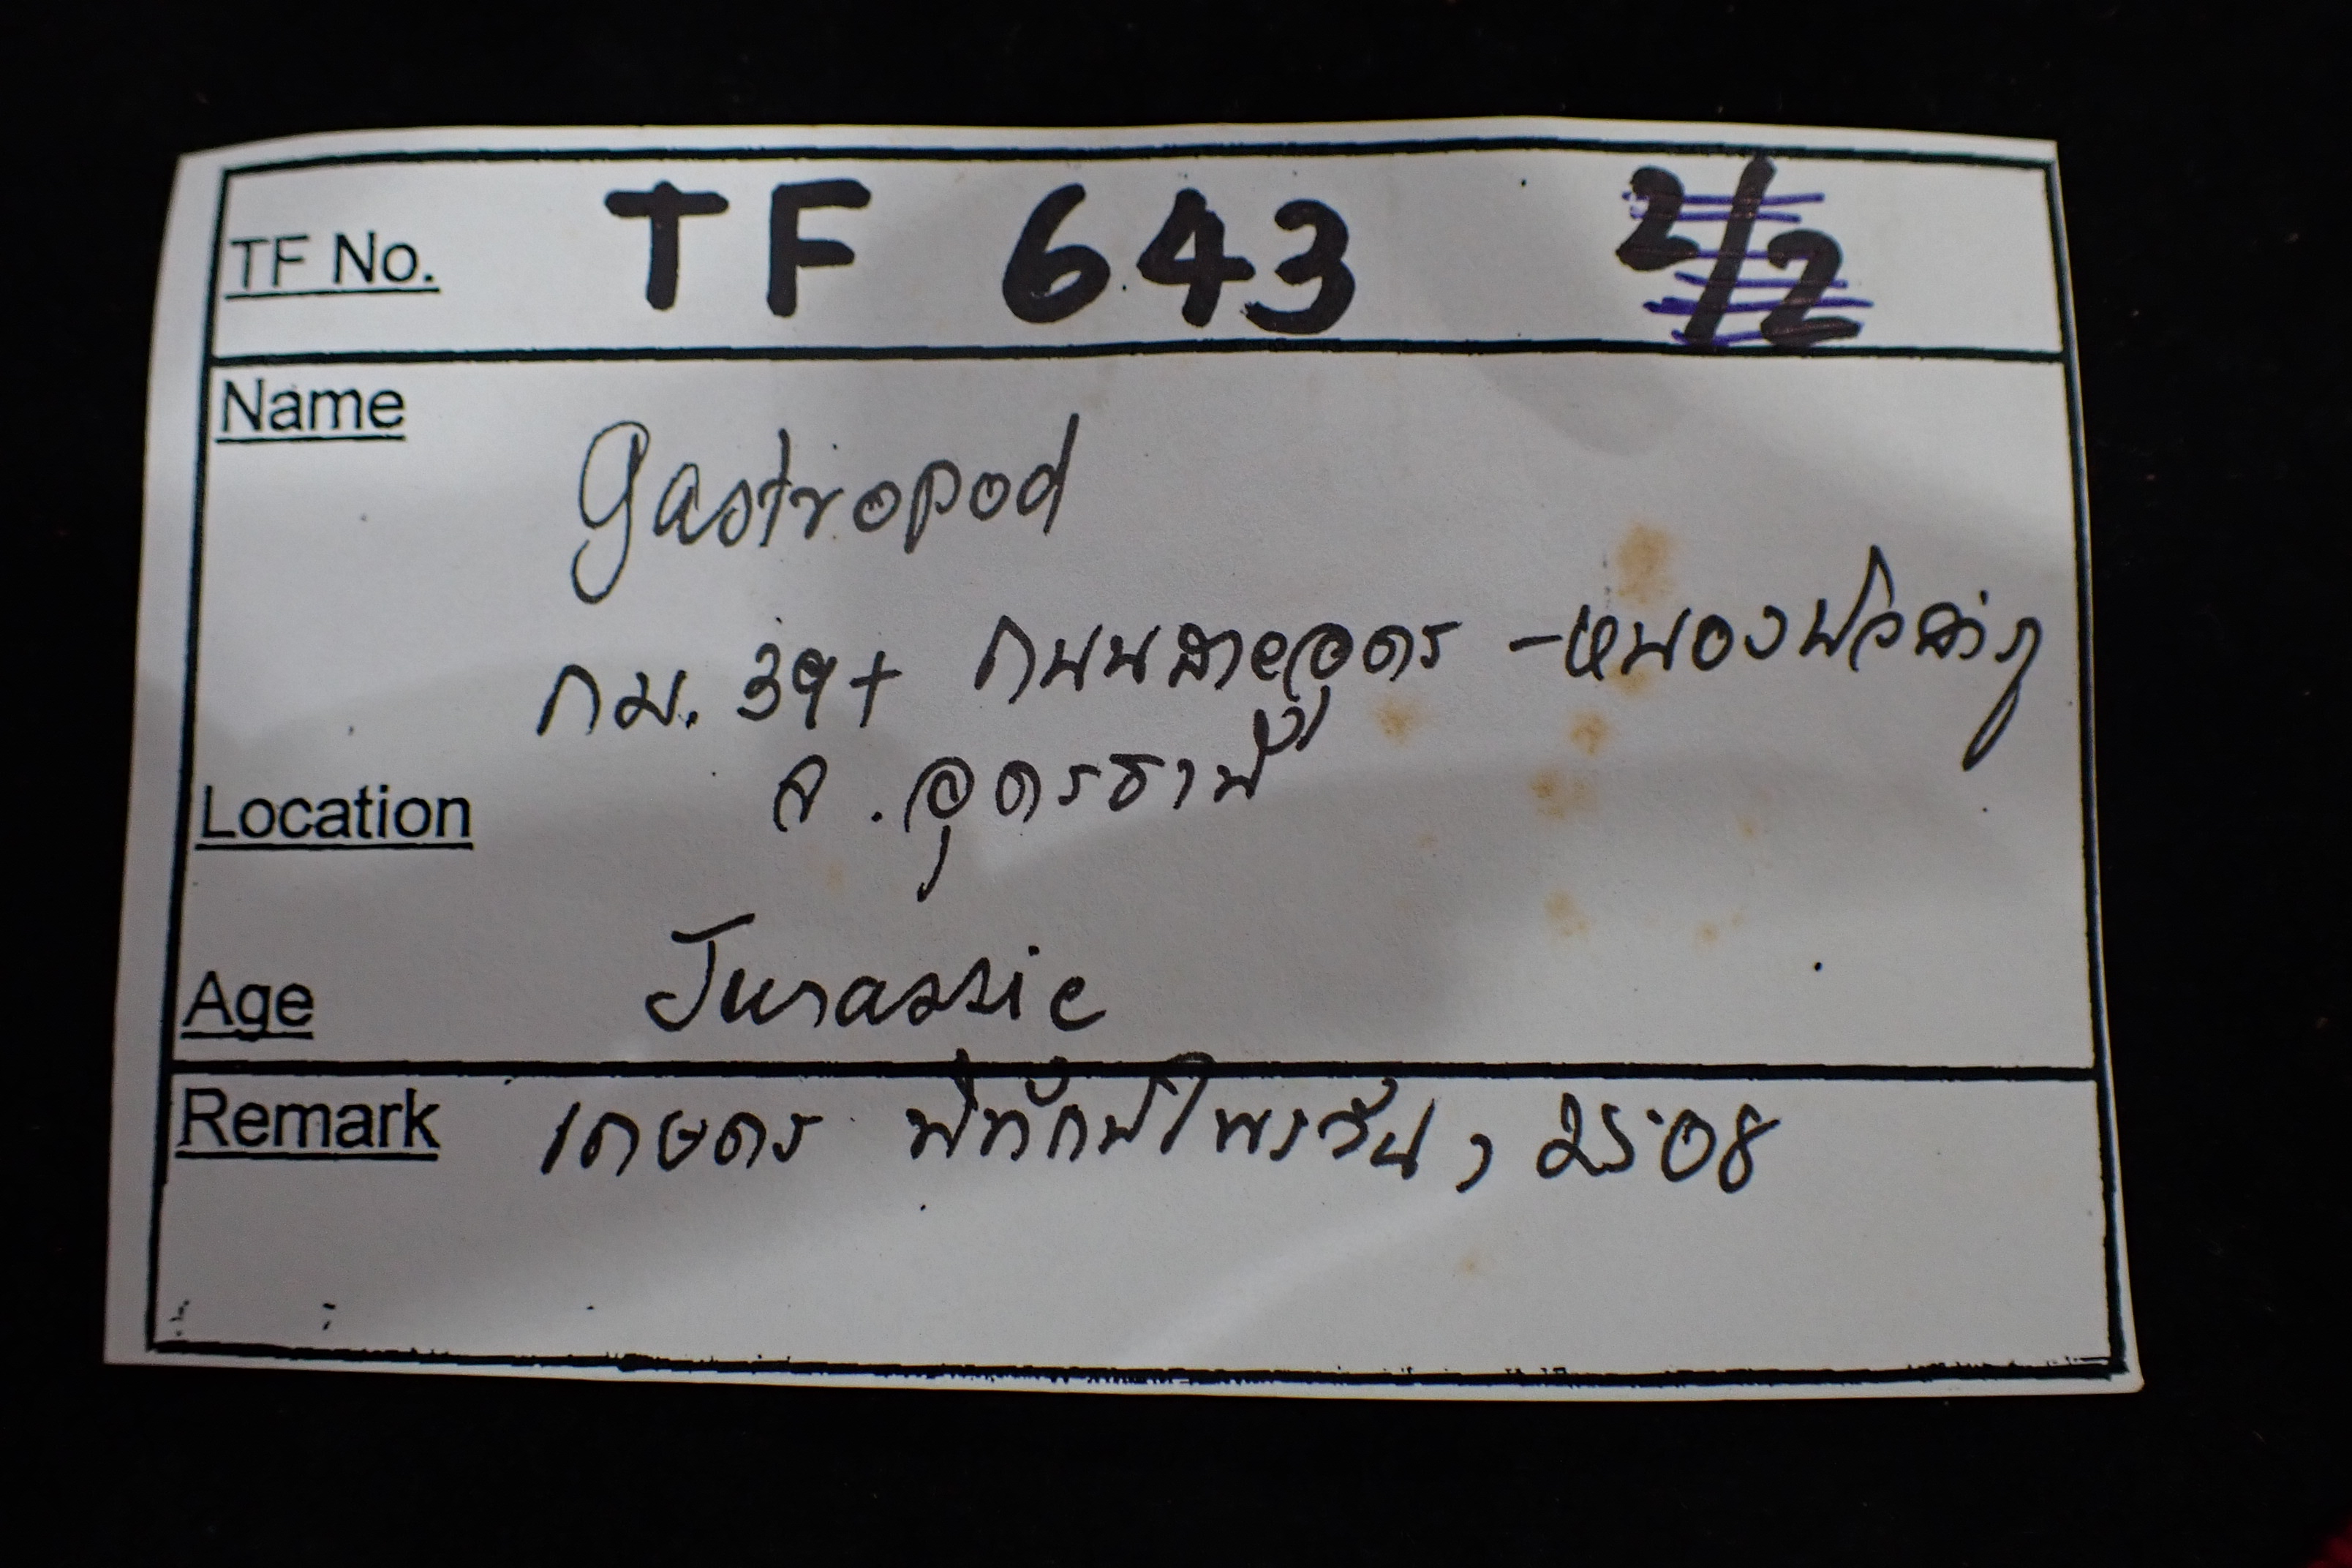 TF No. TF 643 2/2
Name
Gastropod
กม. 39+ ถนนสายอุดร -หนองบัวลำภู
Location จ. อุดรธานี
Age Jurassic
Remark เกษตร พิทักษ์ไพรวัน, 2508